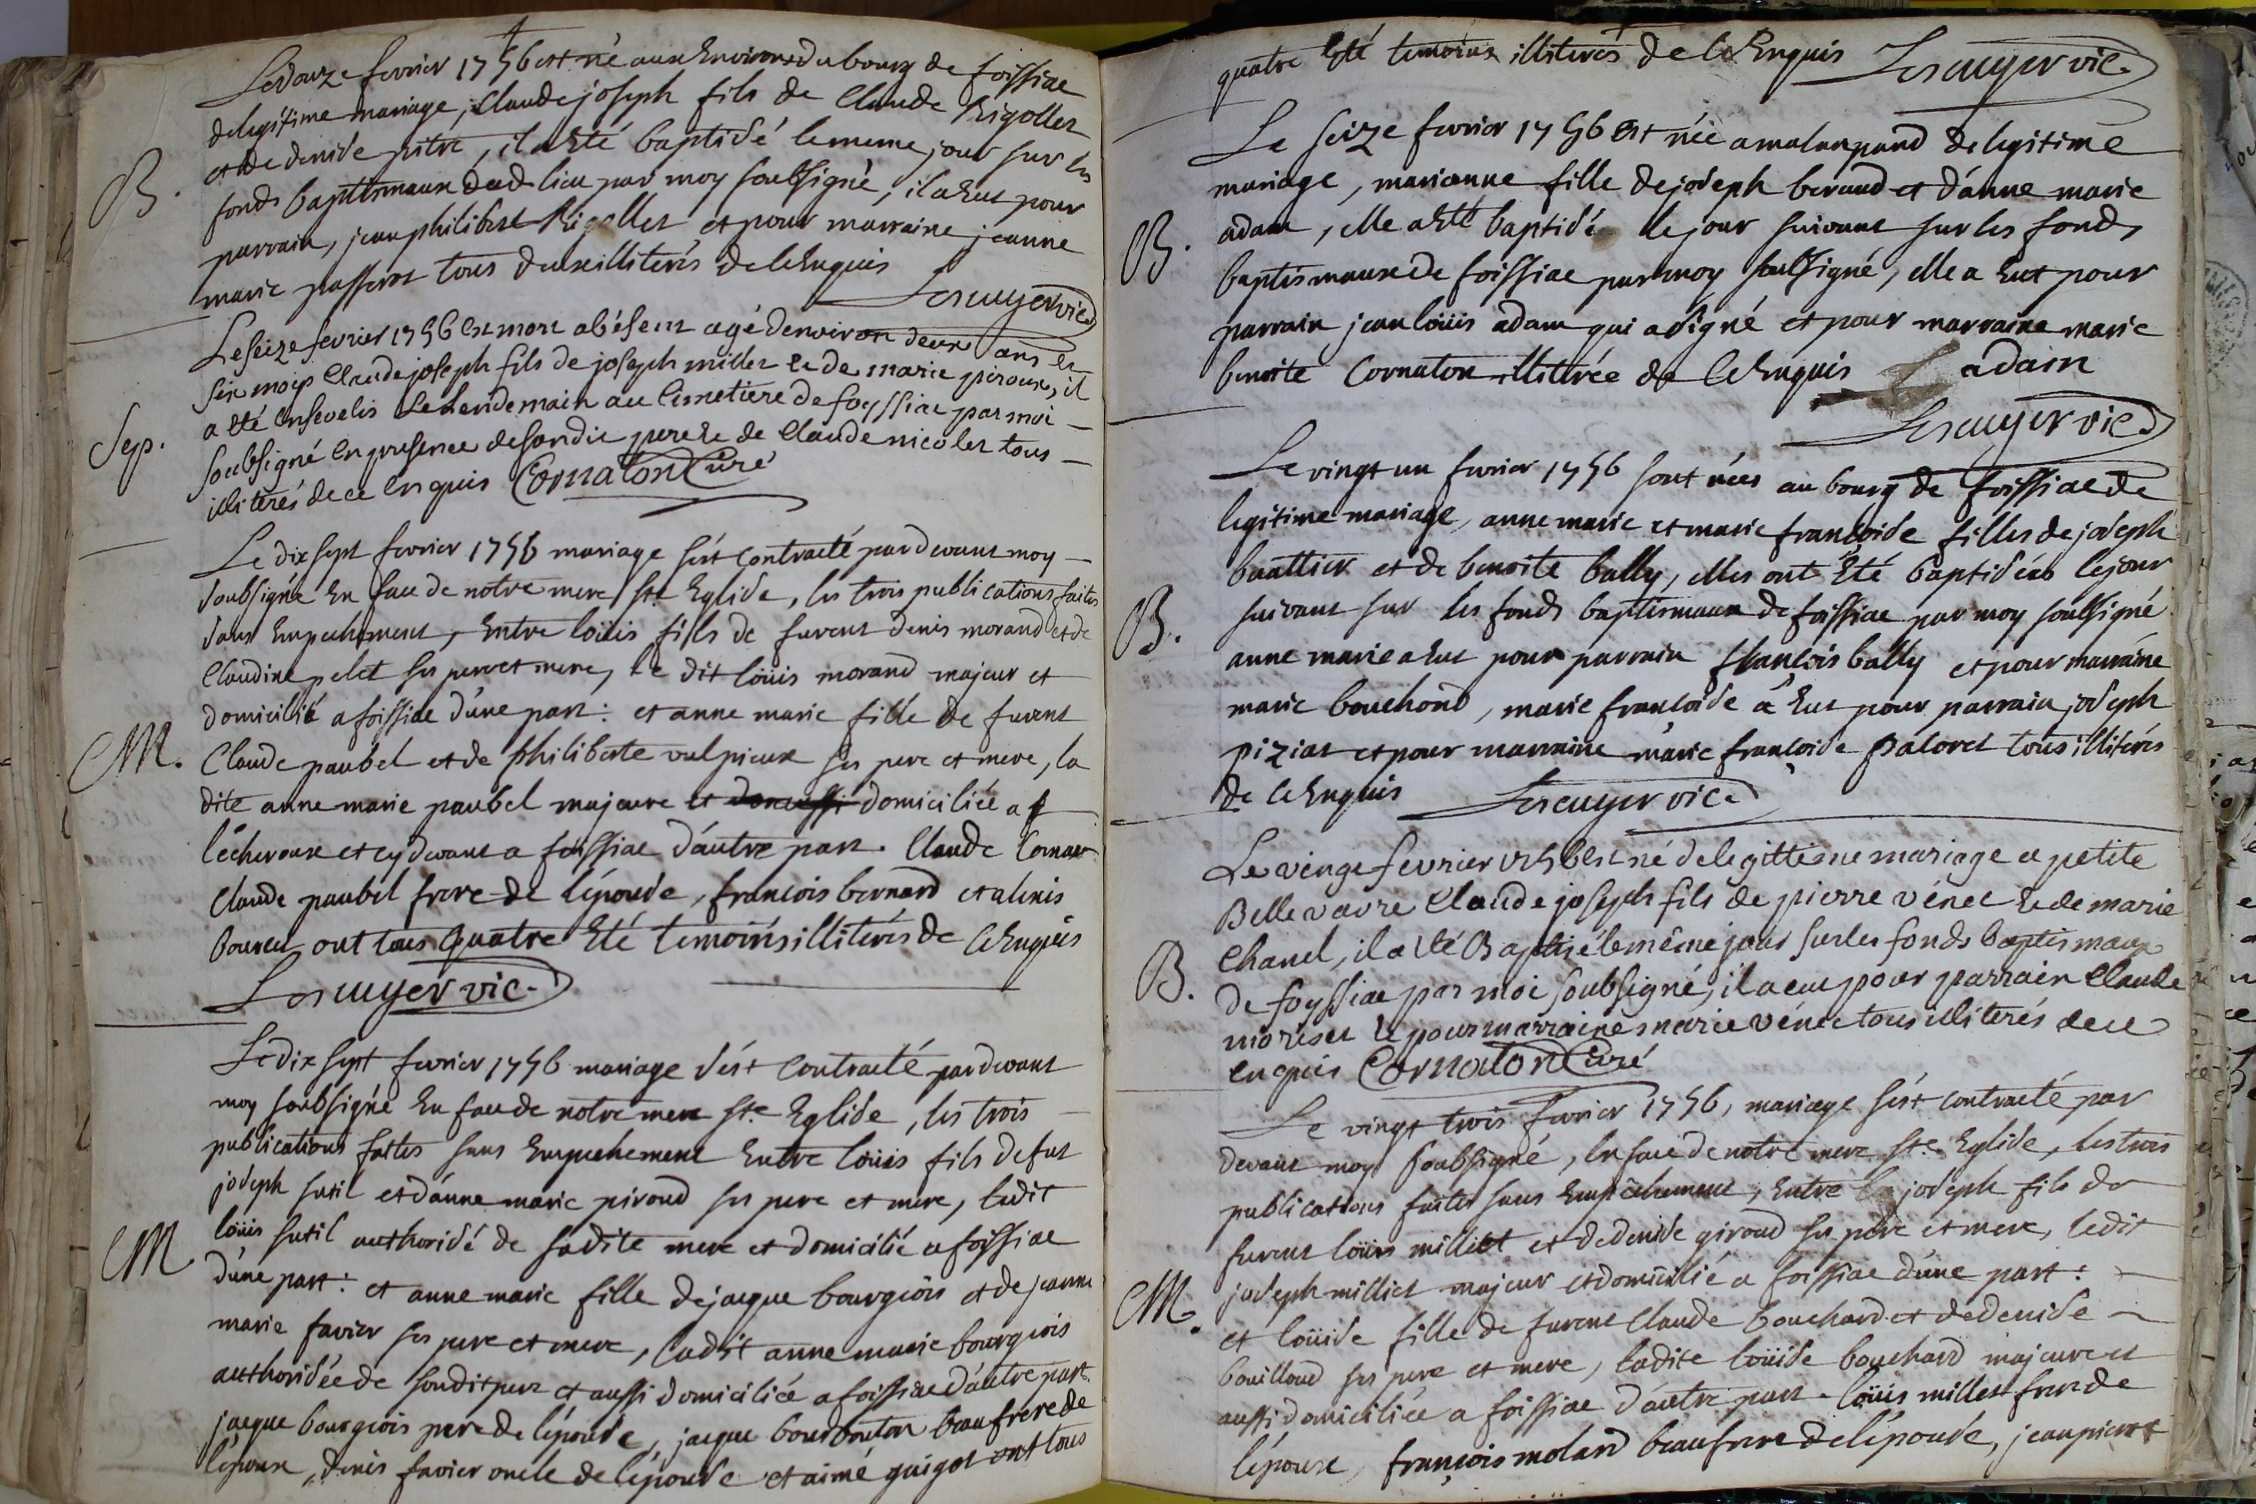 Le douze fevrier 1756 est né aux Environs du bourg de foissiac
de legitime mariage, Claude joseph fils de Claude Rigollet
et de denise pitre, il a Eté baptisé le meme jour sur les
B.
fonds baptismaux dud lieu par moy soubsigné, il a Eut pour
parrain, jean philibert Rigollet et pour marraine jeanne
marie passerot tous deux illiterés de ce Enquis
Lescuyer vic.
Le seize fevrier 1756 est mort agé denviron deux ans et
six mois Claude joseph fils de joseph millet et de marie piroux, il
a eté Ensevelis Le Lendemain au Cimetiere de foyssiac par moi
Sep.
soubsigné En presence de sondit pere et de Claude nicolet tous
illiterés de ce Enquis Cornaton Curé
Le dix sept fevrier 1756 mariage sést contracté pardevant moy
soubsigné En face de notre mere ste Eglise, les trois publications faites
sans Empechement, Entre loüis fils de furent denis morand et de
Claudine pelet ses pere et mere, le dit loüis morand majeur et
domicilié a foissiac d'une part: et anne marie fille de furent
M.
Claude paubel et de philiberte vulpieux ses pere et mere, la
dite anne marie paubel majeure et domiciliée a
lécheroux et cydevant a foissiac d'autre part. Claude
Claude paubel frere de lépouse, francois bernard et alexis
bouveu ont tous quatre Eté temoins illiterés de ce Enquis
Lescuyer vic.
Le dix sept fevrier 1756 mariage sést Contracté pardevant
moy soubsigné En face de notre mere ste Eglise, les trois
publications faites sans Empechement Entre loüis fils de fut
joseph sutil et d'anne marie piroud ses pere et mere, ledit
loüis sutil authorisé de sadite mere et domicilié a foissiac
M
d'une part: et anne marie fille de jacque bourgeois et de jeanne
marie favier ses pere et mere, ladit anne marie bourgeois
authorisée de sondit pere et aussi domiciliée a foissiac d'autre part.
jacque bourgeois pere de lépouse, jacque bourdouton beaufrere de
lépoux, denis favier oncle de lépouse et aimé guigot ont tous
quatre Eté temoins illiterés de ce Enquis Lescuyer vic.
Le seize fevrier 1756 Est née a malanpand de legitime
mariage, marianne fille de joseph beraud et d'anne marie
B.
adam, elle a Eté baptisé le jour suivant sur les fonds
baptismaux de foissiac par moy soubsigné, elle a Eut pour
parrain jean loüis adam qui a signé et pour marraine marie
benoite Cornaton illiterée de ce Enquis adam
Lescuyer vic.
Le vingt un fevrier 1756 sont nées au bourg de foissiac de
legitime mariage, anne marie et marie francoise filles de joseph
bouttier et de benoite bally, elles ont Eté baptisées le jour
B.
suivant sur les fonds baptismaux de foissiac par moy soubsigné
anne marie a Eut pour parrain francois bally et pour marraine
marie bouchond, marie francoise a Eut pour parrain joseph
piziat et pour marraine marie francoise paloret tous illiterés
de ce Enquis Lescuyer vic.
Le vingt fevrier 1756 est né de legittime mariage a petite
Bellevavre Claude joseph fils de pierre vénet et de marie
Chanel, il a eté Baptisé le même jour sur les fonds baptismaux
B.
de foyssiac par moi soubsigné, il a eu pour parrain Claude
morizet et pour marraine marie vénet tous illiterés de ce
Enquis Cornaton Curé
Le vingt trois fevrier 1756, mariage sést contracté par
devant moy soubsigné, En face de notre mere ste Eglise, les trois
publications faites sans Empechement, Entre joseph fils de
furent loüis milliet et de denise giroud ses pere et mere, ledit
M.
joseph milliet majeur et domicilié a foissiac d'une part:
et loüise fille de furent Claude bouchard et de denise
bouilloud ses pere et mere, ladite loüise bouchard majeure et
aussi domiciliée a foissiac d'autre part. loüis millet frere de
lépoux, françois molard beaufrere de lépouse, jean pierre